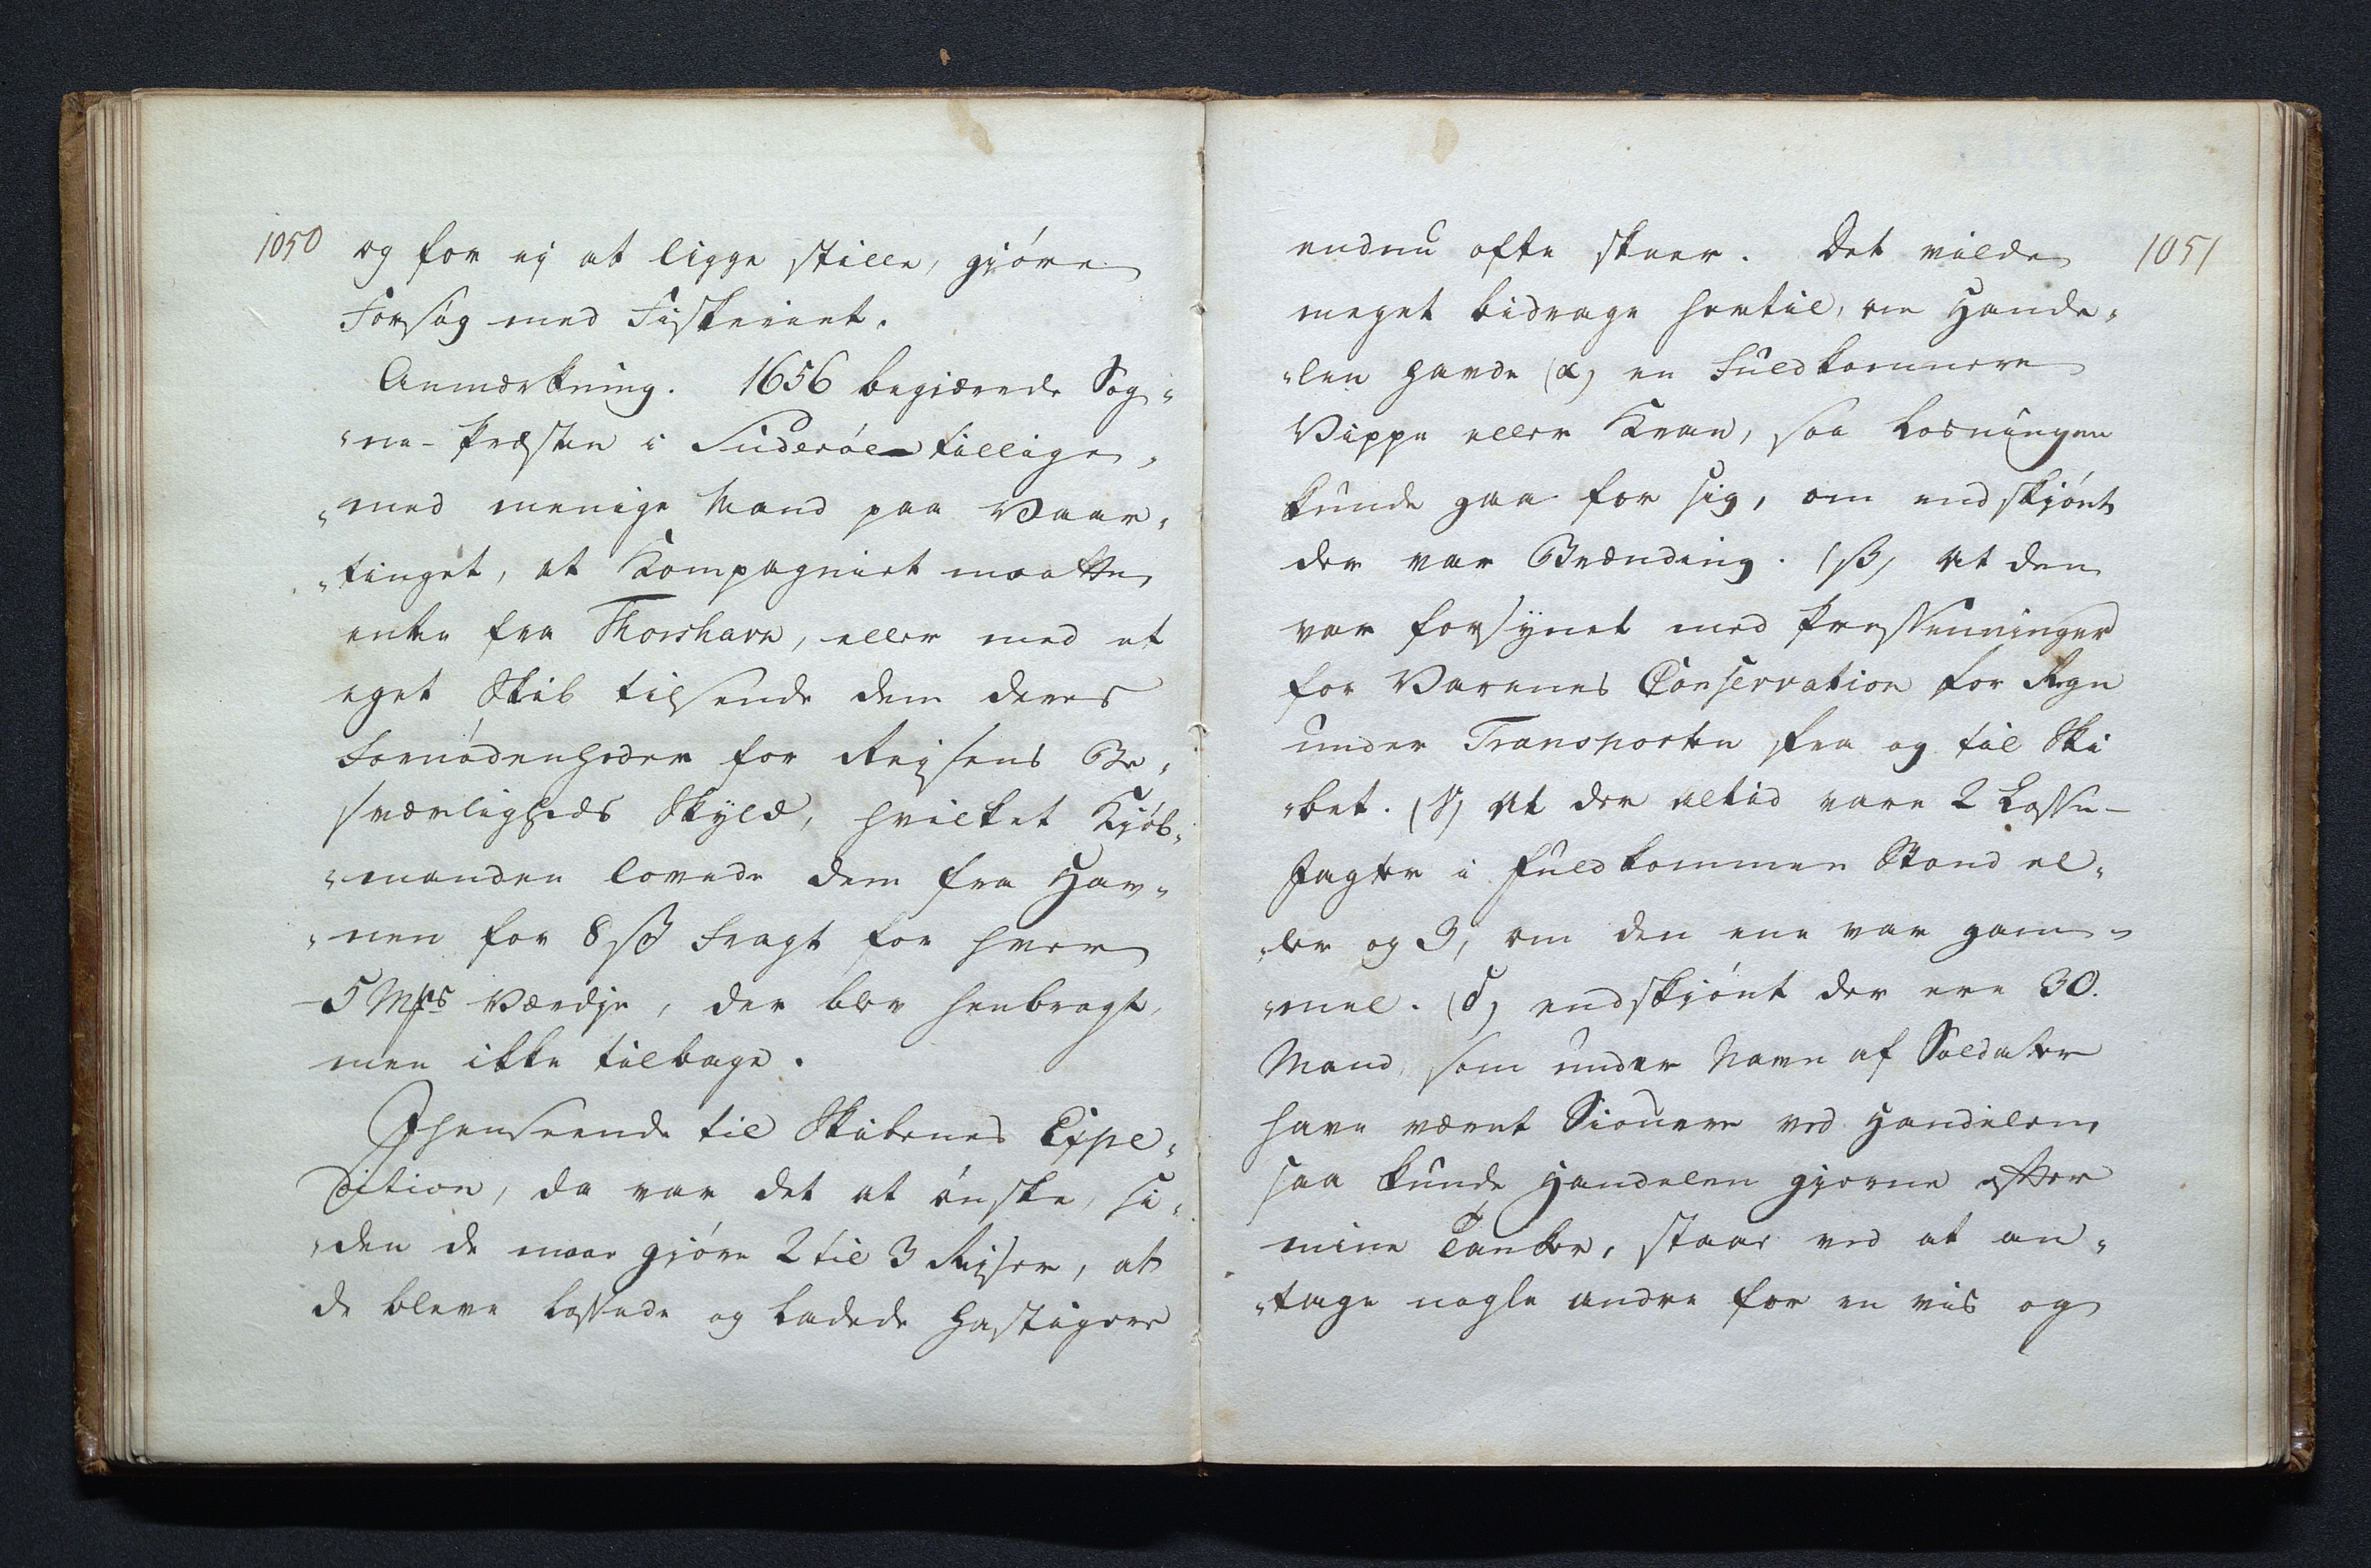 1050
og for ej at ligge stille, gióre
Forsøg med Fiskeriet.
Anmærkning. 1656 begiærede Sog-
ne-Præsten i Suderóe tillige
med menige Mand paa Vaar-
tinget, at Kompagniet maatte
enten fra Thorshavn, eller med et
eget Skib tilsende dem deres
Fornódenheder for Reisens Be-
sværligheds Skyld, hvilket Kiób-
manden lovede dem fra Hav-
nen for 8 sk Fragt for hver
5 Mks Værdie, der blev henbragt,
men ikke tilbage.
I henseende til Skibenes Expe-
dition, da var det at ónske, si-
den de maae gióre 2 til 3 Reiser, at
de bleve lossede og ladede hastigere
1051
endnu ofte skeer. Det vilde
meget bidrage hertil, om Hande-
len havde (α) en Fuldkomnere
Vippe eller Kran, saa Losningen
kunde gaa for sig, om endskiónt
der var Brænding. (β) At den
var forsynet med Pressenninger
for Varenes Conservation for Regn
under Transporten fra og til Ski
bet. (γ) At der altid vare 2 Losse-
Jagter i fuldkommen Stand el-
ler og 3, om den ene var gam-
mel. (δ) endskiónt der ere 30.
Mand, som under Navn af Soldater
have været Siouere ved Handelen
saa kunde Handelen gierne efter
mine Tanker, staae ved at an-
tage nogle andre for en vis og